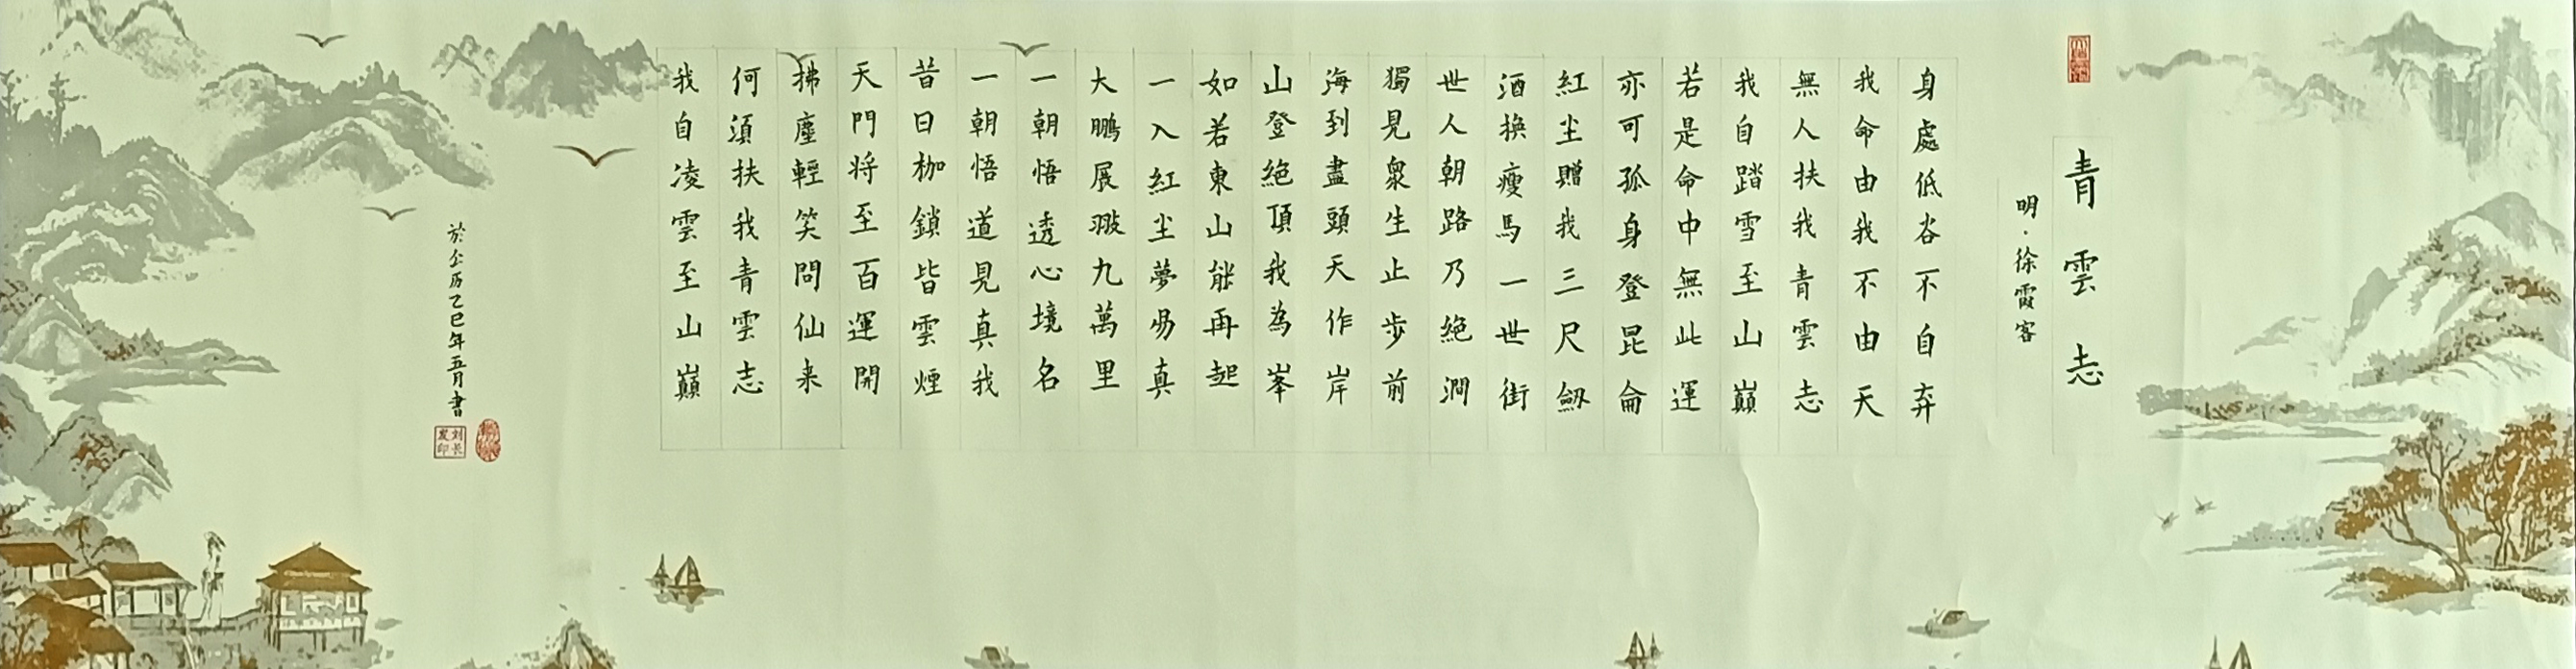 青雲志
明·徐霞客
身處低谷不自弃
我命由我不由天
無人扶我青雲志
我自踏雪至山巔
若是命中無此運
亦可孤身登昆侖
紅尘贈我三尺劔
酒换瘦馬一世街
世人朝路乃絕澗
獨見衆生止步前
海到盡頭天作岸
山登絕頂我為峯
如若東山能再起
大鵬展翅九萬里
一入紅尘夢易真
一朝悟透心境名
一朝悟道見真我
昔日枷鎖皆雲煙
天門将至百運開
拂塵輕笑問仙来
何須扶我青雲志
我自凌雲至山巔
於公历乙巳年五月書
刘长发印